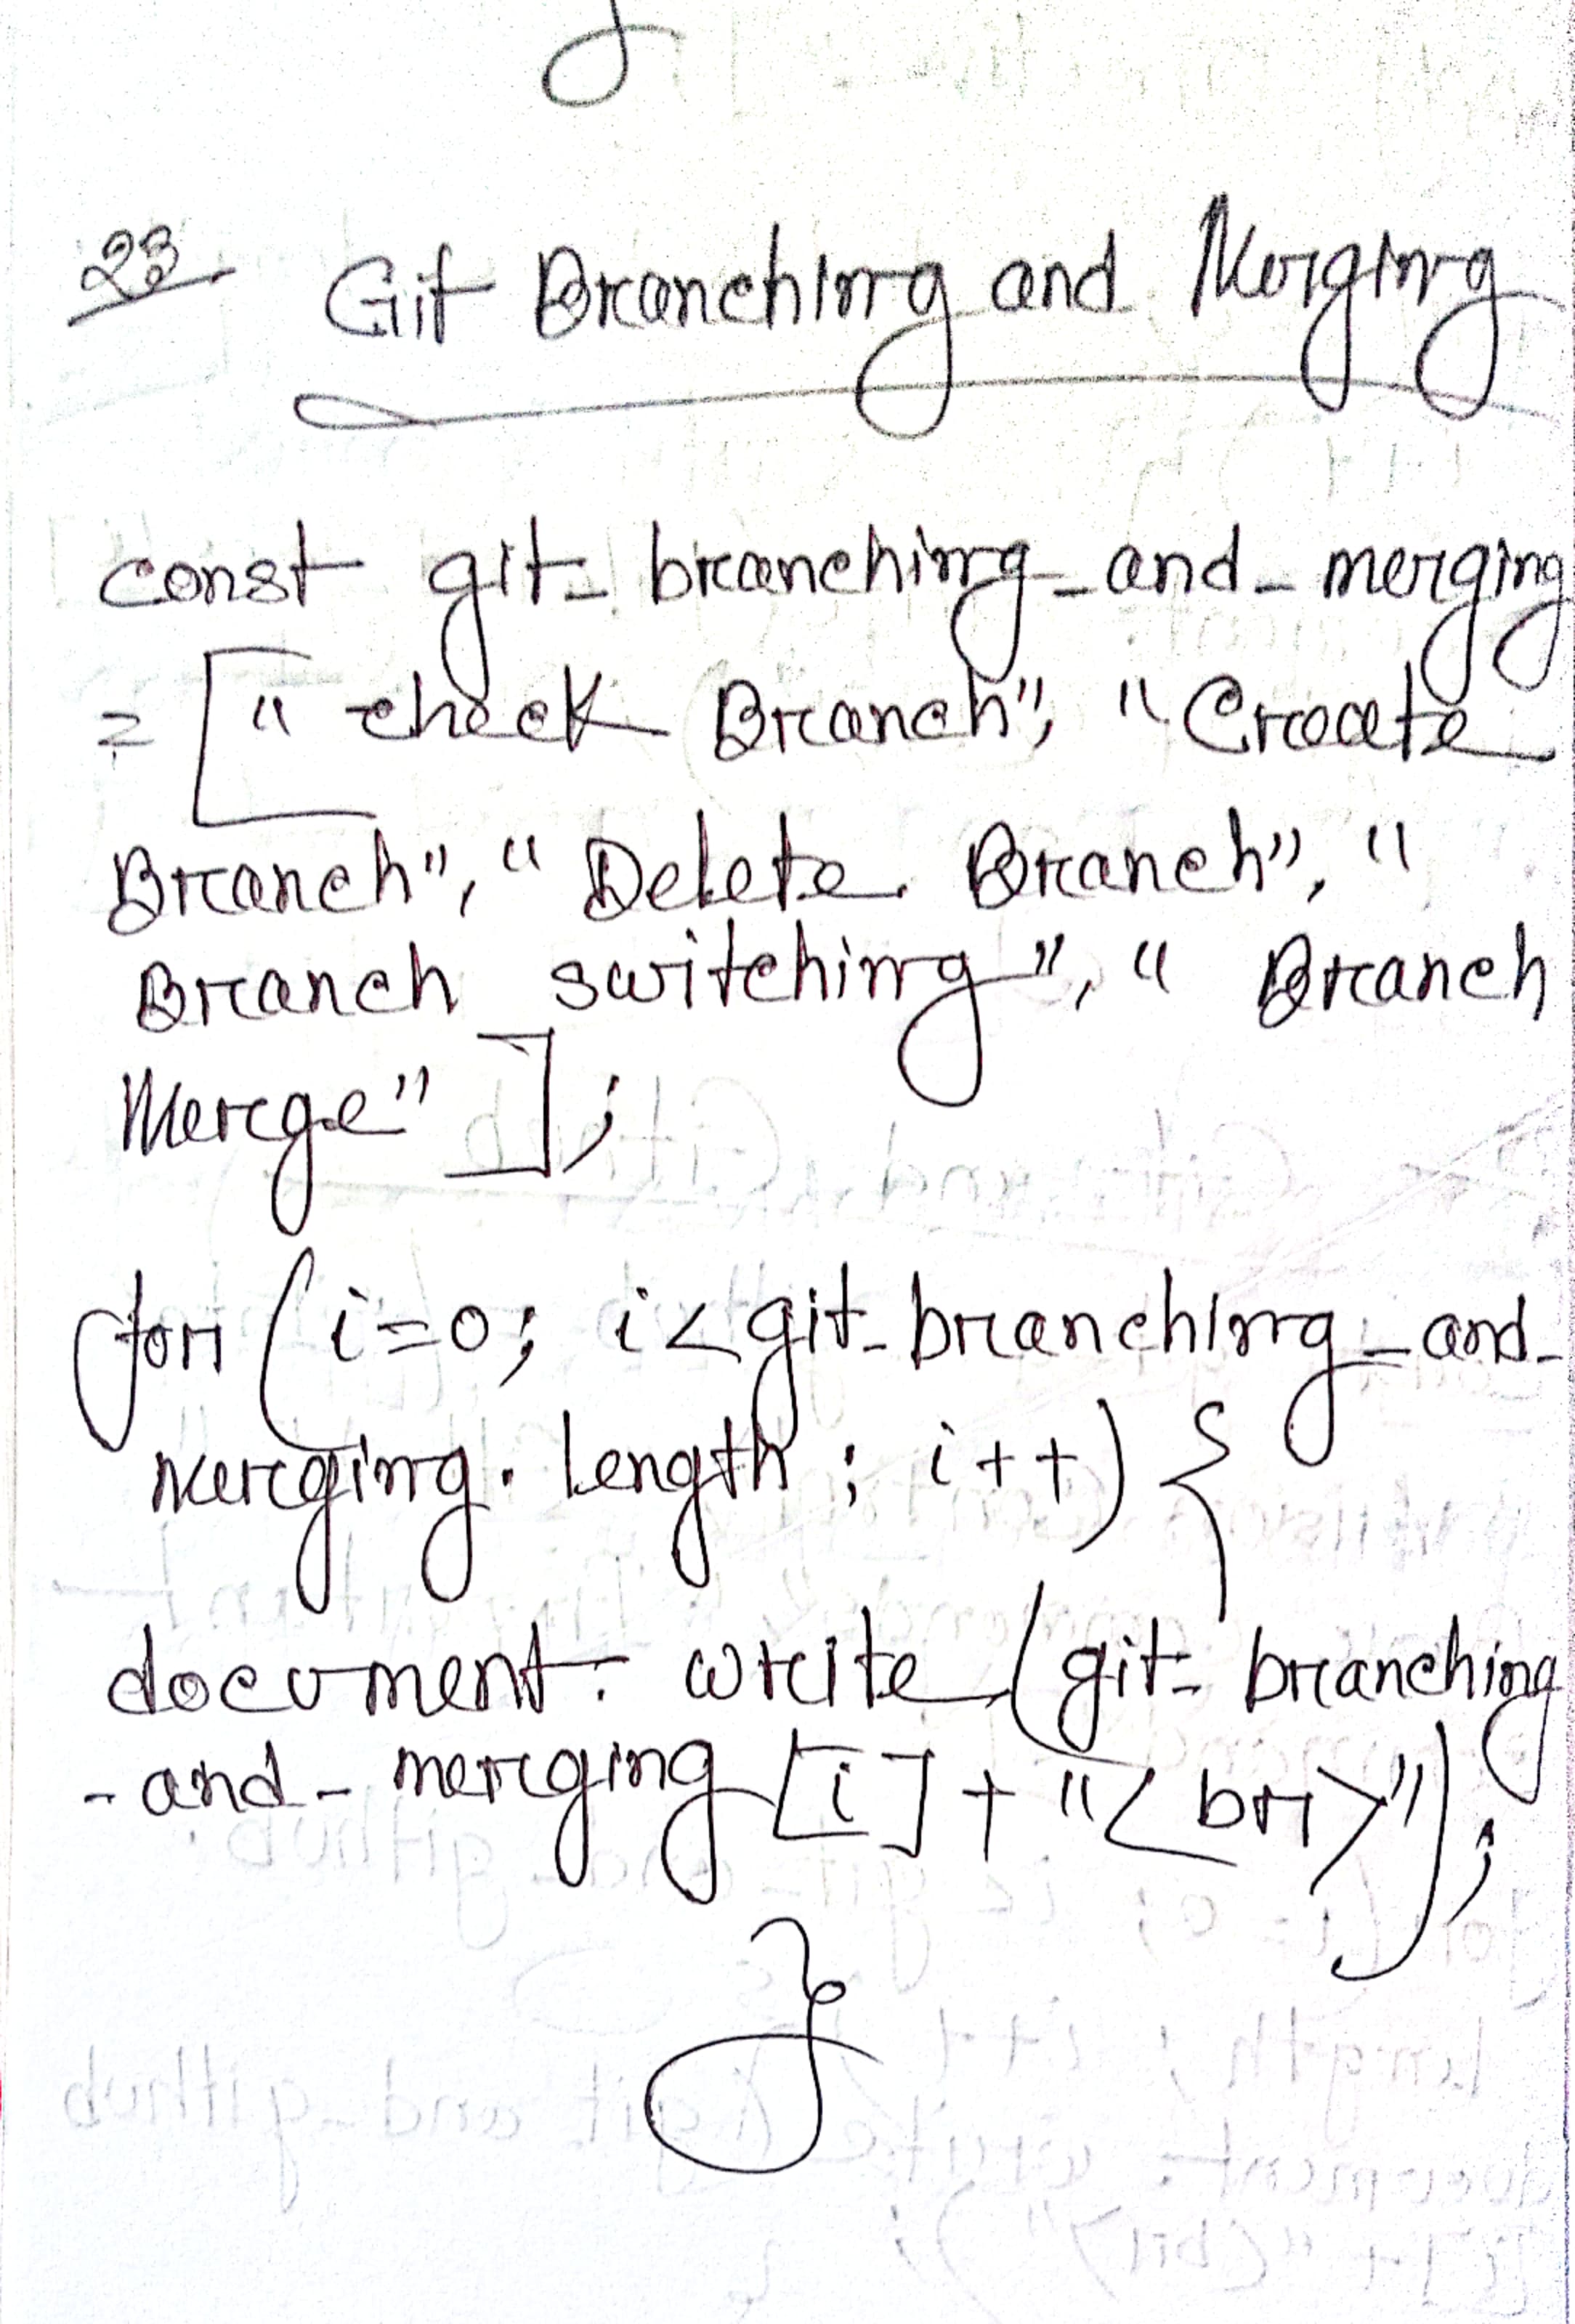 }
23 Git Branching and Merging
const git_branching_and_merging
= ["check Branch", "Create
Branch", "Delete Branch", "
Branch switching", "Branch
Merge"];
for (i=0; i<git_branching_and_
merging.length; i++) {
document.write(git_branching
_and_merging[i] + "<br>");
}